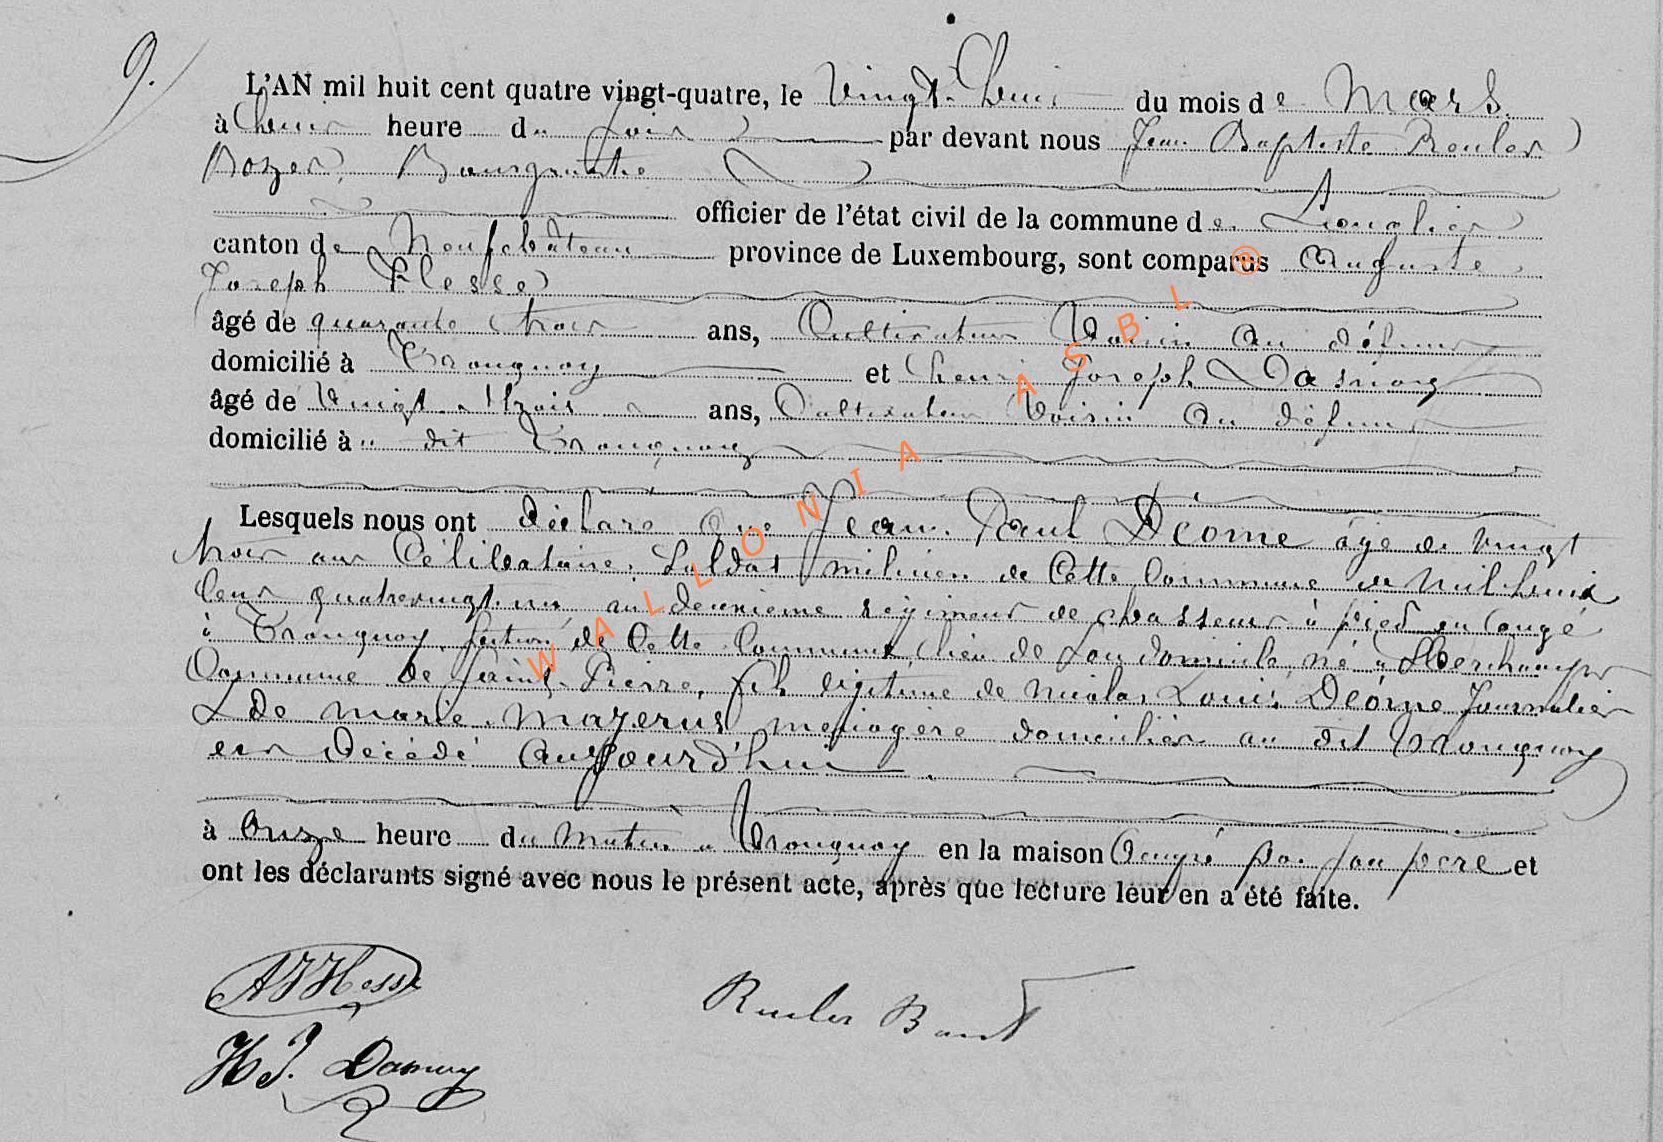 9.
L'AN mil huit cent quatre vingt-quatre, le Vingt huit du mois de Mars
à heure du Soir par devant nous Jean Baptiste Reuler
Bourgmestre
officier de l'état civil de la commune de Longlier
canton de Neufchâteau province de Luxembourg, sont comparus Auguste
Joseph Hesse
âgé de quarante trois ans, Cultivateur Voisin Au défunt
domicilié à Tronquoy et henri Joseph Dasnoy
âgé de Vingt trois ans, Cultivateur Voisin Au défunt
domicilié à dit Tronquoy
Lesquels nous ont déclaré Que Jean Paul Déome âgé de vingt
trois ans Célibataire, Soldat milicien de Cette Commune de mil huit
Cent quatrevingt un au deuxième régiment de chasseurs à pied en Congé
à Tronquoy section de Cette Commune, lieu de Son domicile, né à Sberchamps
Commune de Saint Pierre, fils légitime de Nicolas Louis Déome Journalier
& de marie Mazerus ménagère domiciliés au dit Tronquoy
est Décédé Aujourd'hui
à Onze heure du Matin à Tronquoy en la maison Occupé par Son père et
ont les déclarants signé avec nous le présent acte, après que lecture leur en a été faite.
AJHesse
Reuler Bapt
HJ. Dasnoy
WALLONIA ASBL ®